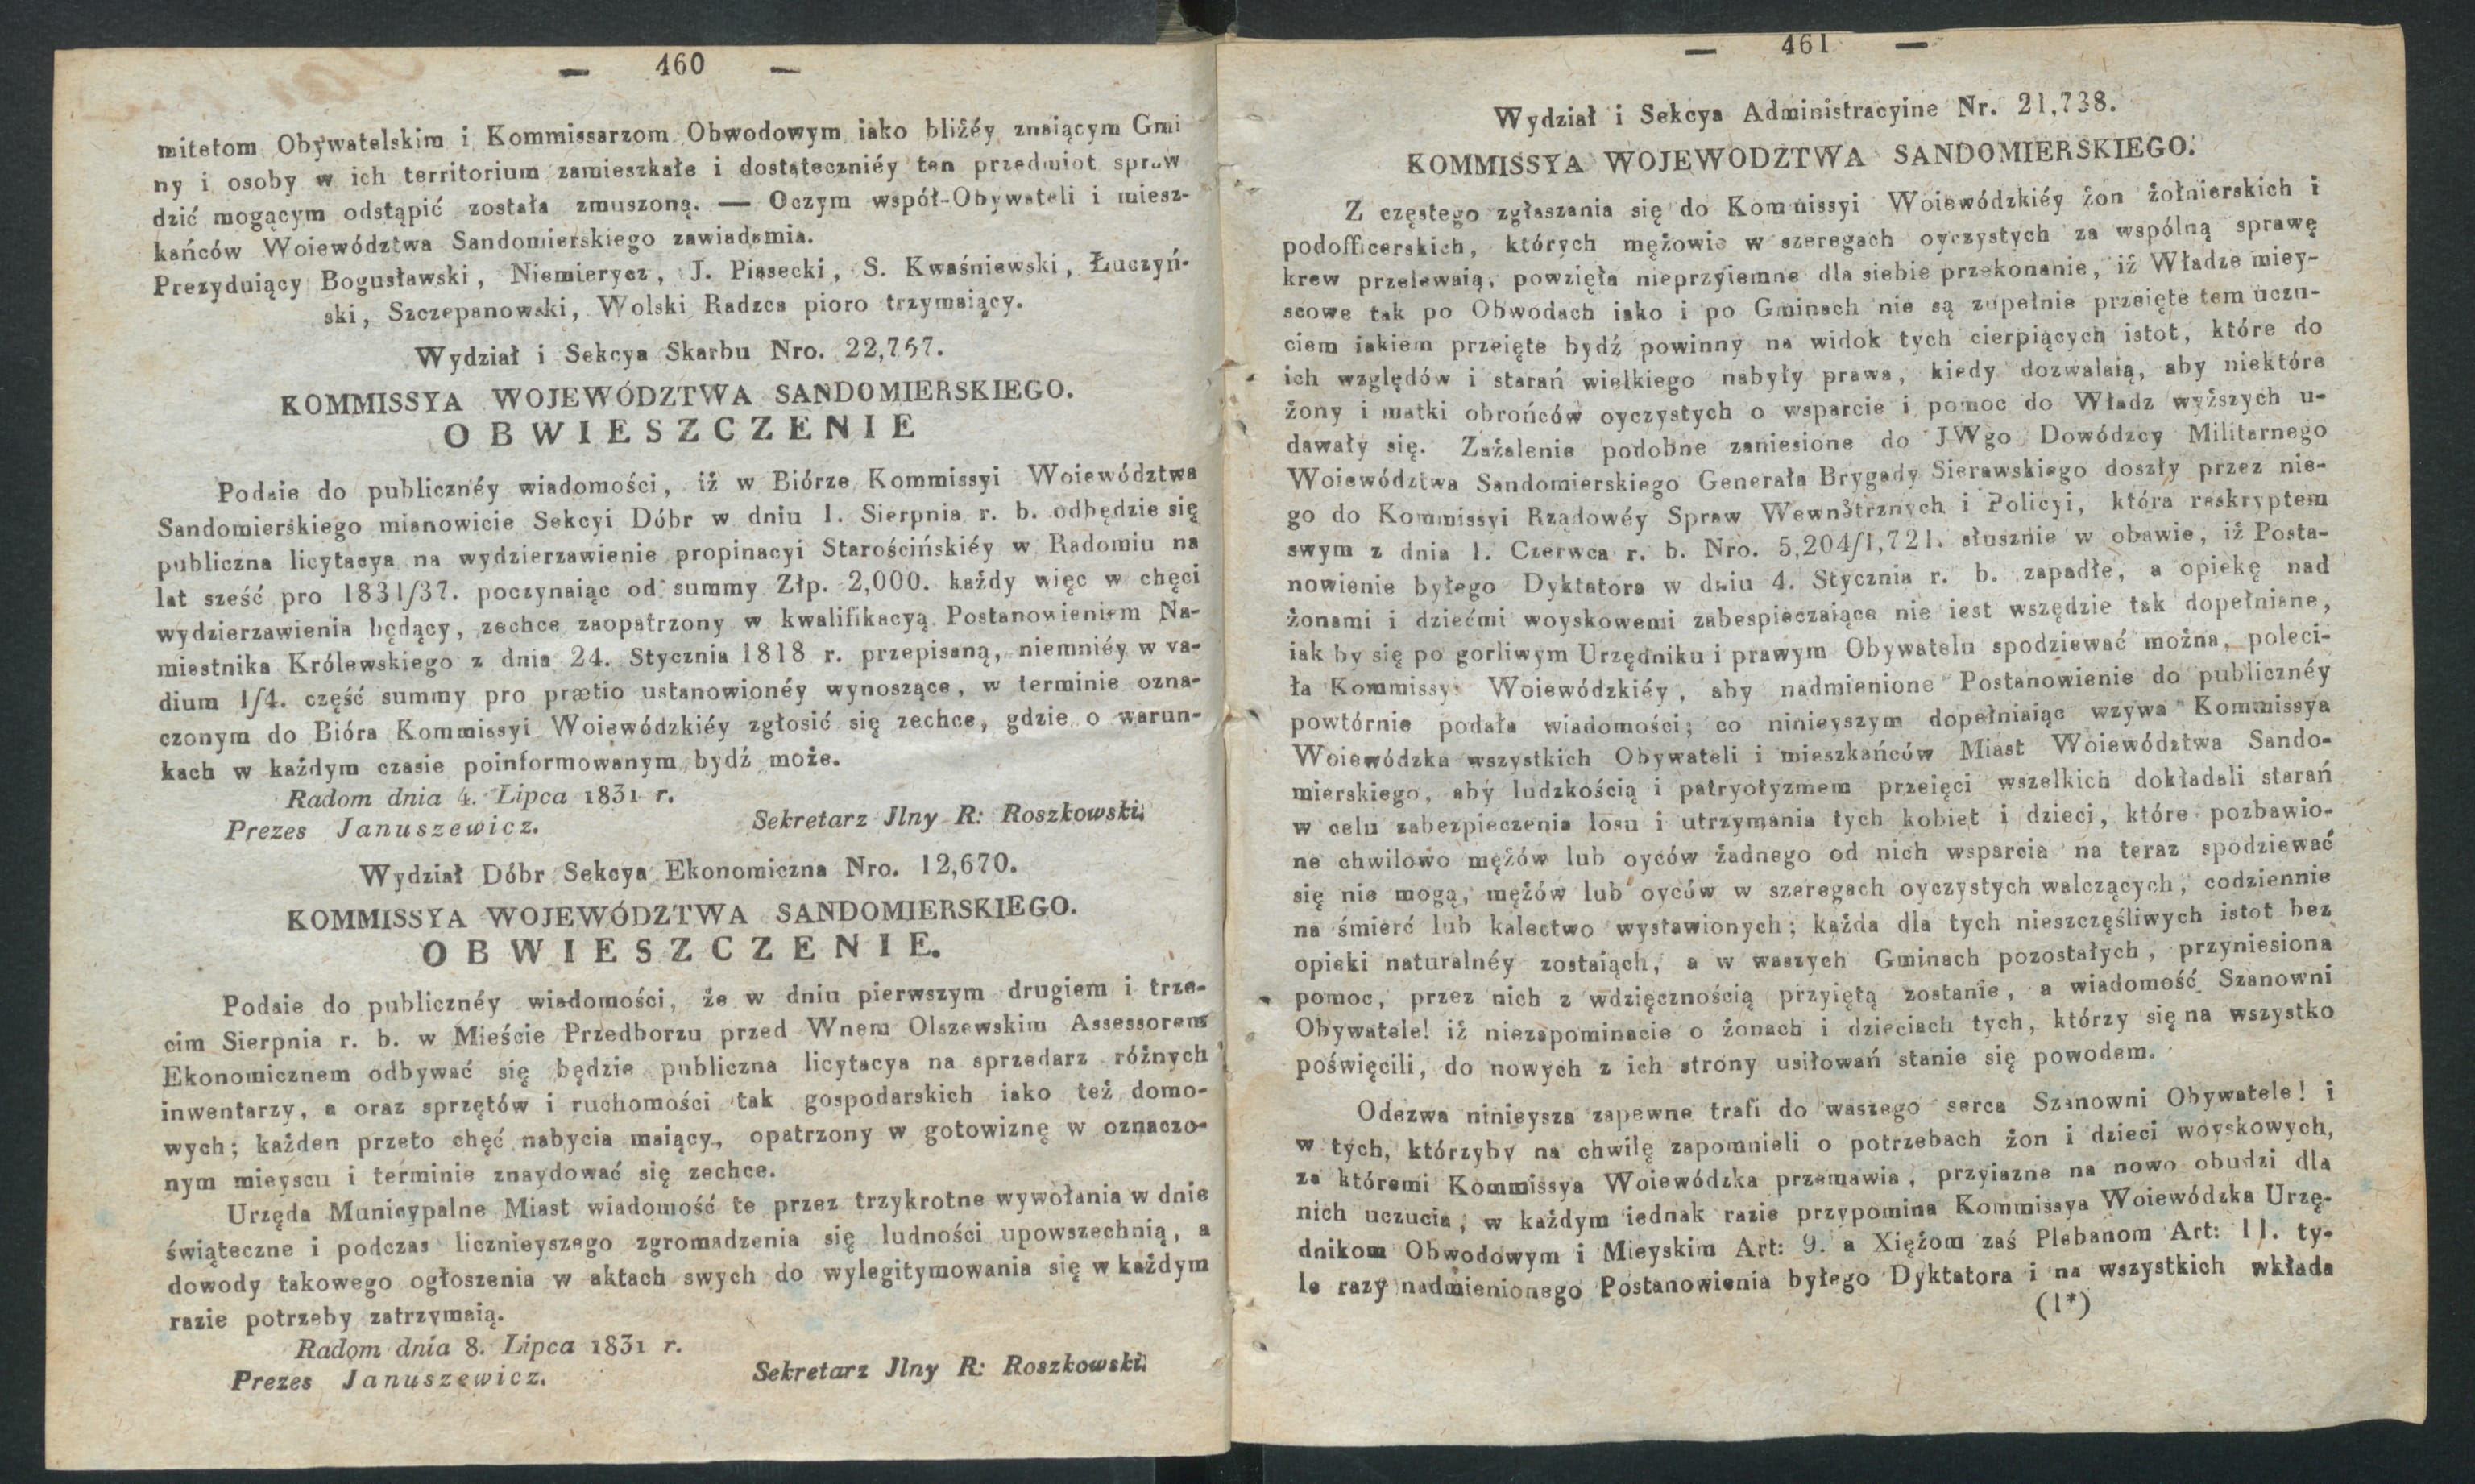 — 460 —
mitetom Obywatelskim i Kommissarzom Obwodowym iako bliźéy znaiącym Gmi
ny i osoby w ich territorium zamieszkałe i dostateczniéy ten przedmiot spraw
dzić mogącym odstąpić została zmuszoną. — Oczym współ-Obywateli i miesz-
kańców Woiewództwa Sandomierskiego zawiadamia.
Prezyduiący Bogusławski, Niemierycz, J. Piasecki, S. Kwaśniewski, Łuczyń-
ski, Szczepanowski, Wolski Radzca pioro trzymaiący.
Wydział i Sekcya Skarbu Nro. 22,757.
KOMMISSYA WOJEWÓDZTWA SANDOMIERSKIEGO.
OBWIESZCZENIE
Podaie do publicznéy wiadomości, iż w Biórze Kommissyi Woiewództwa
Sandomierskiego mianowicie Sekcyi Dóbr w dniu 1. Sierpnia r. b. odbędzie się
publiczna licytacya na wydzierzawienie propinacyi Starościńskiéy w Radomiu na
lat sześć pro 1831/37. poczynaiąc od summy Złp. 2,000. każdy więc w chęci
wydzierzawienia będący, zechce zaopatrzony w kwalifikacyą Postanowieniem Na-
miestnika Królewskiego z dnia 24. Stycznia 1818 r. przepisaną, niemniéy w va-
dium 1/4. część summy pro prætio ustanowionéy wynoszące, w terminie ozna-
czonym do Bióra Kommissyi Woiewódzkiéy zgłosić się zechce, gdzie o warun-
kach w każdym czasie poinformowanym bydź może.
Radom dnia 4. Lipca 1831 r.
Prezes Januszewicz. Sekretarz Jlny R: Roszkowski.
Wydział Dóbr Sekcya Ekonomiczna Nro. 12,670.
KOMMISSYA WOJEWÓDZTWA SANDOMIERSKIEGO.
OBWIESZCZENIE.
Podaie do publicznéy wiadomości, że w dniu pierwszym drugiem i trze-
cim Sierpnia r. b. w Mieście Przedborzu przed Wnem Olszewskim Assessorem
Ekonomicznem odbywać się będzie publiczna licytacya na sprzedarz różnych
inwentarzy, a oraz sprzętów i ruchomości tak gospodarskich iako też domo-
wych; każden przeto chęć nabycia maiący, opatrzony w gotowiznę w oznaczo-
nym mieyscu i terminie znaydować się zechce.
Urzęda Municypalne Miast wiadomość te przez trzykrotne wywołania w dnie
świąteczne i podczas licznieyszego zgromadzenia się ludności upowszechnią, a
dowody takowego ogłoszenia w aktach swych do wylegitymowania się w każdym
razie potrzeby zatrzymaią.
Radom dnia 8. Lipca 1831 r.
Prezes Januszewicz. Sekretarz Jlny R: Roszkowski.
— 461 —
Wydział i Sekcya Administracyine Nr. 21,738.
KOMMISSYA WOJEWODZTWA SANDOMIERSKIEGO.
Z częstego zgłaszania się do Kommissyi Woiewódzkiéy żon żołnierskich i
podofficerskich, których mężowie w szeregach oyczystych za wspólną sprawę
krew przelewaią, powzięła nieprzyiemne dla siebie przekonanie, iż Władze miey-
scowe tak po Obwodach iako i po Gminach nie są zupełnie przeięte tem uczu-
ciem iakiem przeięte bydź powinny na widok tych cierpiących istot, które do
ich względów i starań wielkiego nabyły prawa, kiedy dozwalaią, aby niektóre
żony i matki obrońców oyczystych o wsparcie i pomoc do Władz wyższych u-
dawały się. Zażalenie podobne zaniesione do JWgo Dowódzcy Militarnego
Woiewództwa Sandomierskiego Generała Brygady Sierawskiego doszły przez nie-
go do Kommissyi Rządowéy Spraw Wewnętrznych i Policyi, która reskryptem
swym z dnia 1. Czerwca r. b. Nro. 5,204/1,721. słusznie w obawie, iż Posta-
nowienie byłego Dyktatora w dniu 4. Stycznia r. b. zapadłe, a opiekę nad
żonami i dziećmi woyskowemi zabespieczaiące nie iest wszędzie tak dopełniane,
iak by się po gorliwym Urzędniku i prawym Obywatelu spodziewać można, poleci-
ła Kommissyi Woiewódzkiéy, aby nadmienione Postanowienie do publicznéy
powtórnie podała wiadomości; co ninieyszym dopełniaiąc wzywa Kommissya
Woiewódzka wszystkich Obywateli i mieszkańców Miast Woiewództwa Sando-
mierskiego, aby ludzkością i patryotyzmem przeięci wszelkich dokładali starań
w celu zabezpieczenia losu i utrzymania tych kobiet i dzieci, które pozbawio-
ne chwilowo mężów lub oyców żadnego od nich wsparcia na teraz spodziewać
się nie mogą, mężów lub oyców w szeregach oyczystych walczących, codziennie
na śmierć lub kalectwo wystawionych; każda dla tych nieszczęśliwych istot bez
opieki naturalnéy zostaiąch, a w waszych Gminach pozostałych, przyniesiona
pomoc, przez nich z wdzięcznością przyiętą zostanie, a wiadomość Szanowni
Obywatele! iż niezapominacie o żonach i dzieciach tych, którzy się na wszystko
poświęcili, do nowych z ich strony usiłowań stanie się powodem.
Odezwa ninieysza zapewne trafi do waszego serca Szanowni Obywatele! i
w tych, którzyby na chwilę zapomnieli o potrzebach żon i dzieci woyskowych,
za któremi Kommissya Woiewódzka przemawia, przyiazne na nowo obudzi dla
nich uczucia, w każdym iednak razie przypomina Kommissya Woiewódzka Urzę-
dnikom Obwodowym i Mieyskim Art: 9. a Xiężom zaś Plebanom Art: 11. ty-
le razy nadmienionego Postanowienia byłego Dyktatora i na wszystkich wkłada
(1*)